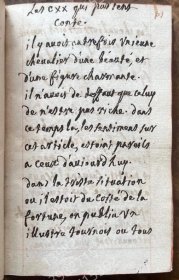 Les CXX qui
Conte.
il y avoit autrefois un jeune
chevalier d'une beauté, et
d'une figure charmante.
il n'avoit de deffaut que celuy
de n'estre pas riche. dans
ce temps la, les sentimens sur
cet article, estoint pareils
a ceux d'aujourd'huy.
dans la triste situation
ou il estoit du costé de la
fortune, on publia un
illustre tournois ou tous